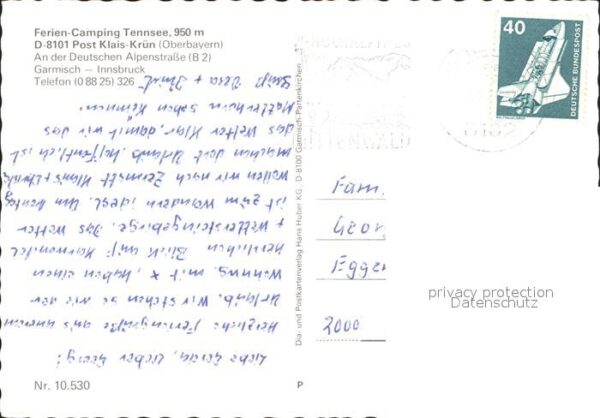 Ferien-Camping Tennsee, 950 m
D-8101 Post Klais-Krün (Oberbayern)
An der Deutschen Alpenstraße (B 2)
Garmisch — Innsbruck
Telefon (0 88 25) 326
Liebe Gerda, lieber Georg!
Herzliche Feriengrüße aus unserem
Urlaub. Wir stehen so wie der
Wohnung. mit x, haben einen
herrlichen Blick auf Karwendel
+ Wettersteingebirge. Das Wetter
ist zum Wandern ideal. Am Montag
wollen wir nach Zermatt
machen dort Urlaub, hoffentlich ist
das Wetter klar, damit wir das
Matterhorn sehen können.
Dia- und Postkartenverlag Hans Huber KG, D-8100 Garmisch-Partenkirchen
MITTENWALD
8102
40
DEUTSCHE BUNDESPOST
Fam.
Geor
Egger
2000
privacy protection
Datenschutz
Nr. 10.530
P